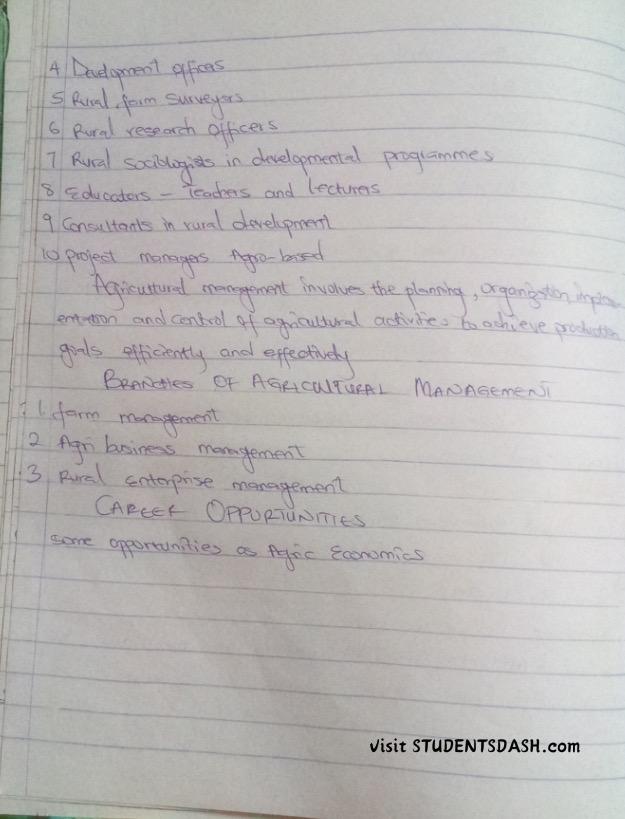 4 Development officers
5 Rural farm surveyors
6 Rural research officers
7 Rural sociologists in developmental programmes
8 Educators - Teachers and Lecturers
9 Consultants in rural development
10 project managers Agro-based
Agricultural management involves the planning, organization, implem
entation and control of agricultural activities to achieve production
goals efficiently and effectively
BRANCHES OF AGRICULTURAL MANAGEMENT
1. farm management
2 Agri business management
3 Rural Enterprise management
CAREER OPPORTUNITIES
some opportunities as Agric Economics
Visit STUDENTSDASH.com